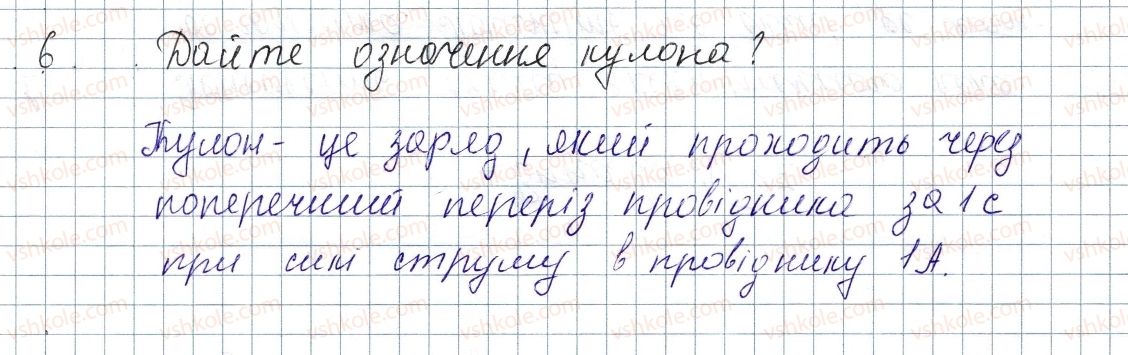 6. Дайте означення кулона?
Кулон - це заряд, який проходить через
поперечний переріз провідника за 1 с
при силі струму в провіднику 1А.